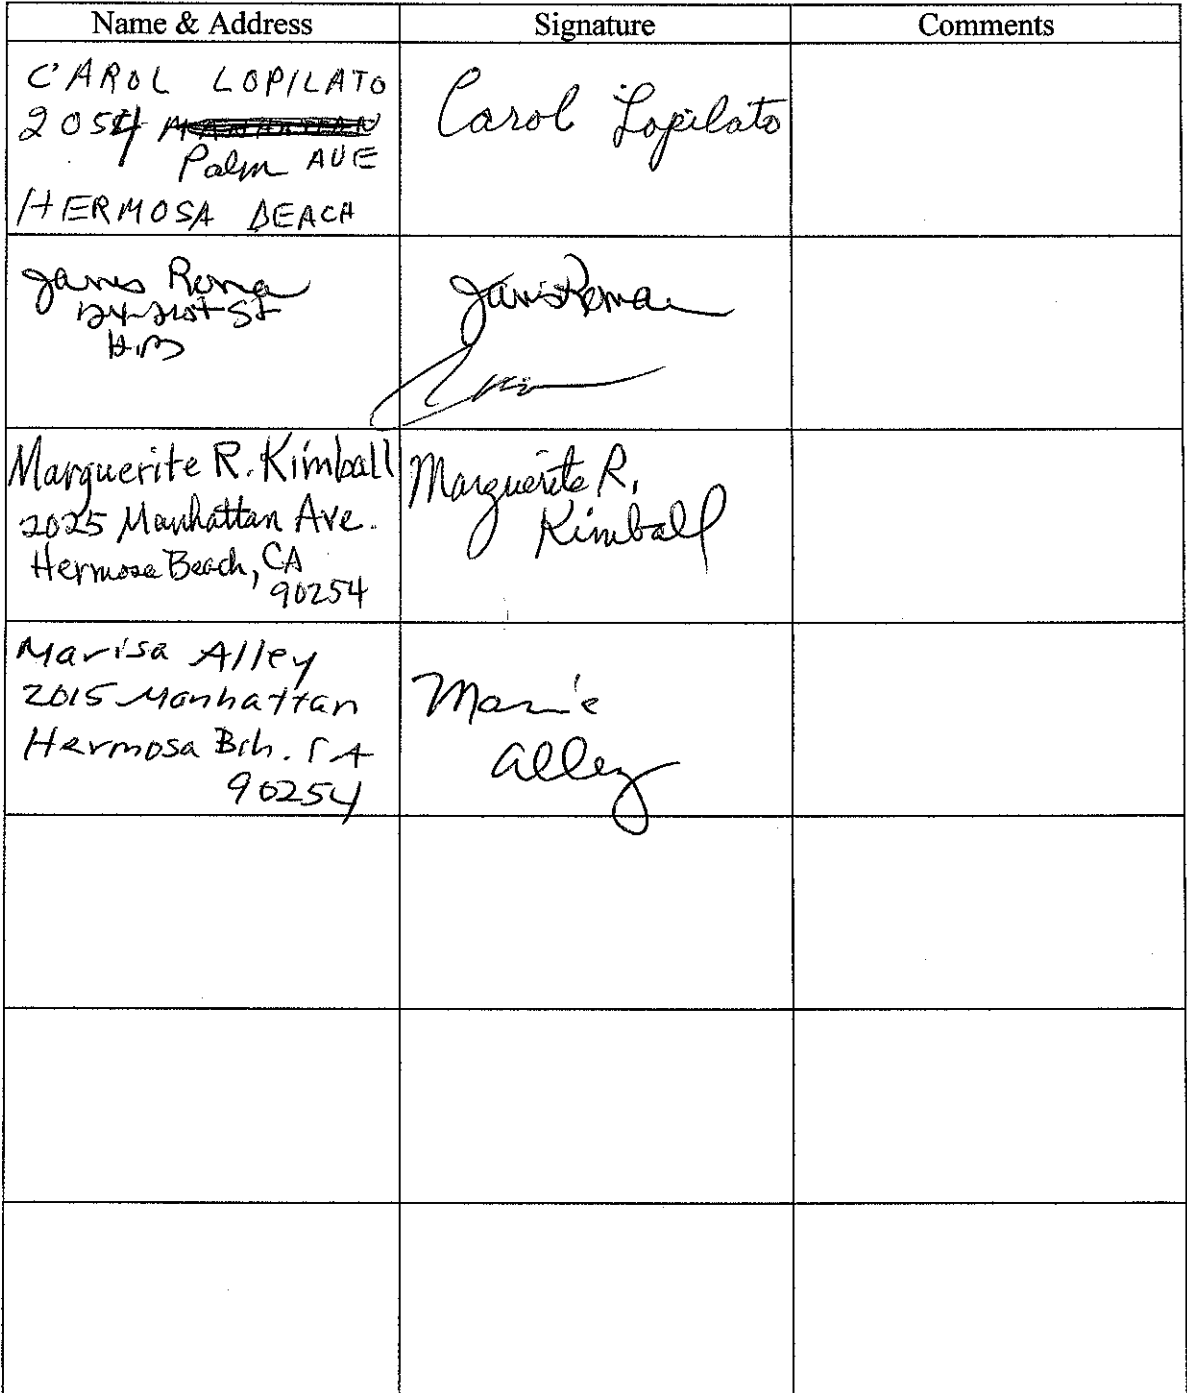 Name & Address
Signature
Comments
CAROL LOPILATO
2054
Palm AVE
HERMOSA BEACH
Carol Lopilato
Janis Roma
124-21st St
H.B
Marguerite R. Kimball
2025 Manhattan Ave.
Hermosa Beach, CA
90254
Marguerite R.
Kimball
Marisa Alley
2015 Manhattan
Hermosa Bch. CA
90254
Alley